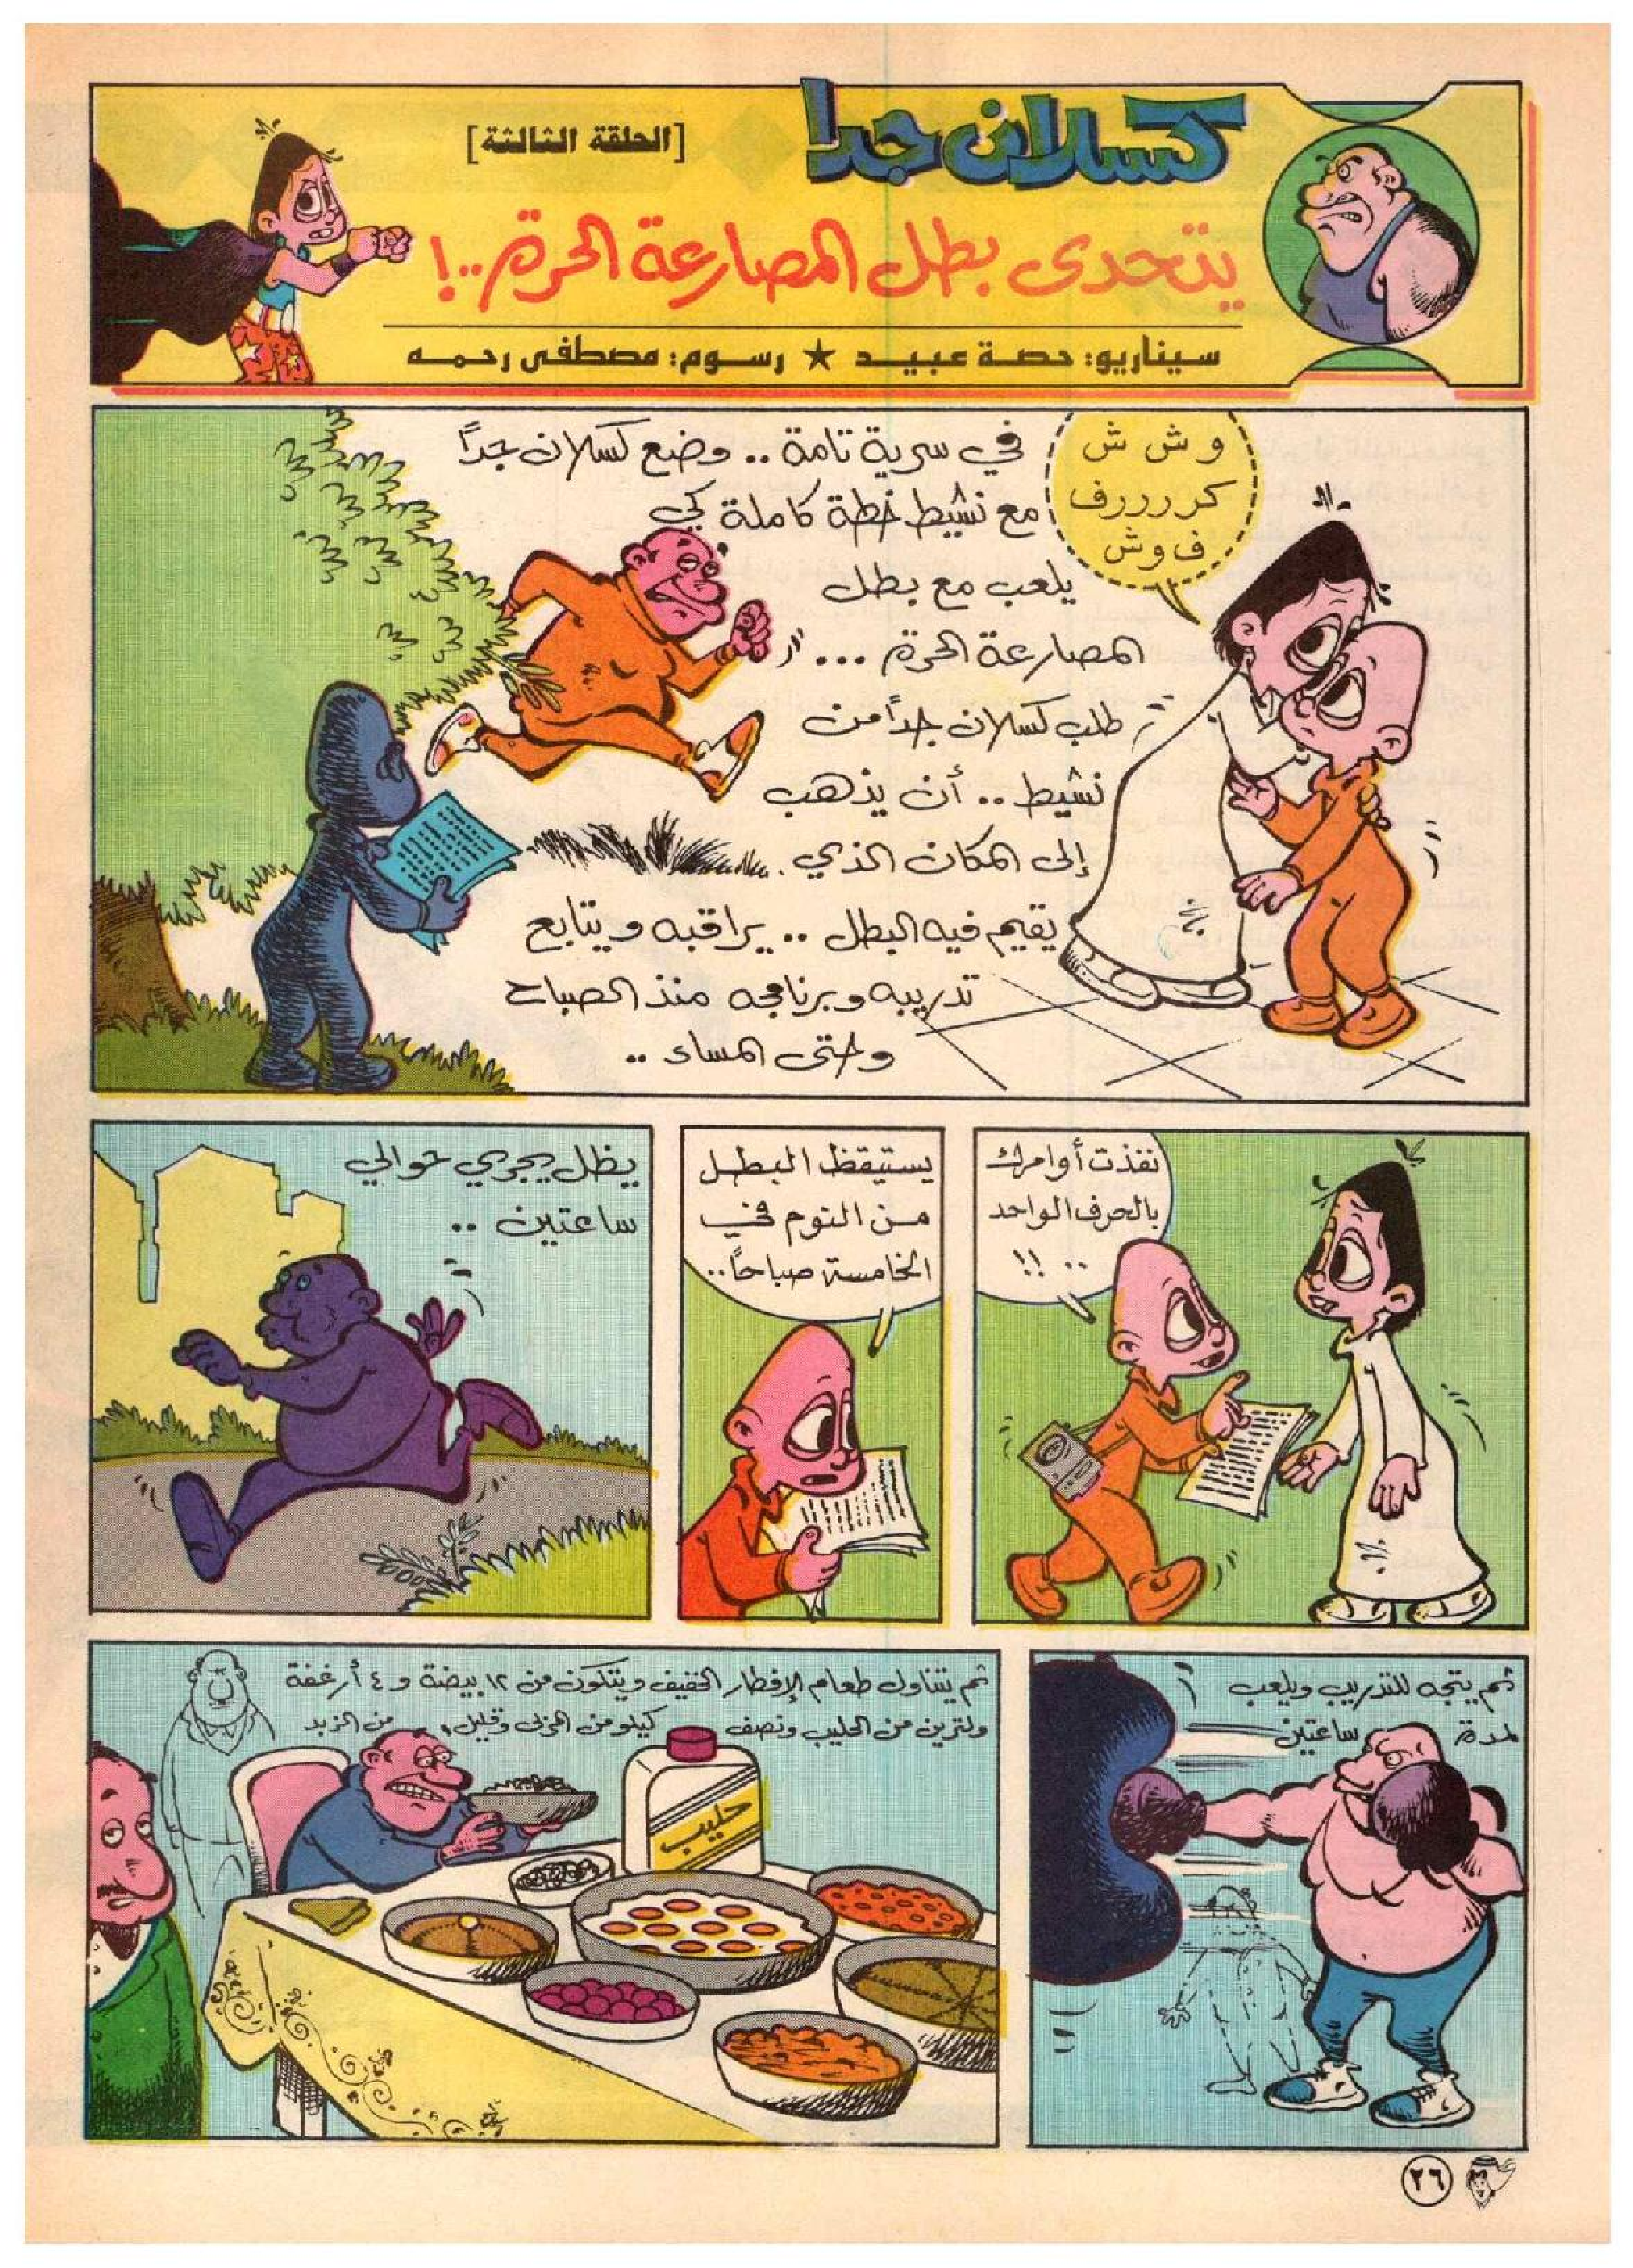 كسلان جدا
[الحلقة الثالثة]
يتحدى بطل المصارعة الحرة..!
سيناريو: حصة عبيد ★ رسوم: مصطفى رحمه
وش ش
كرررررف
ف وش
في سرية تامة .. وضع كسلان جداً
مع نشيط خطة كاملة كي
يلعب مع بطل
المصارعة الحرة ...
طلب كسلان جداً من
نشيط .. أن يذهب
إلى المكان الذي
يقيم فيه البطل .. يراقبه ويتابع
تدريبه وبرنامجه منذ الصباح
وحتى المساء ..
نفذت أوامرك
بالحرف الواحد
.. !!
يستيقظ البطل
من النوم في
الخامسة صباحاً..
يظل يجري حوالي
ساعتين ..
ثم يتجه للتدريب ويلعب
لمدة ساعتين
ثم يتناول طعام الإفطار الخفيف ويتكون من ١٢ بيضة و ٤ أرغفة
ولترين من الحليب ونصف كيلو من المربى وقليل من الزبد
حليب
٢٦